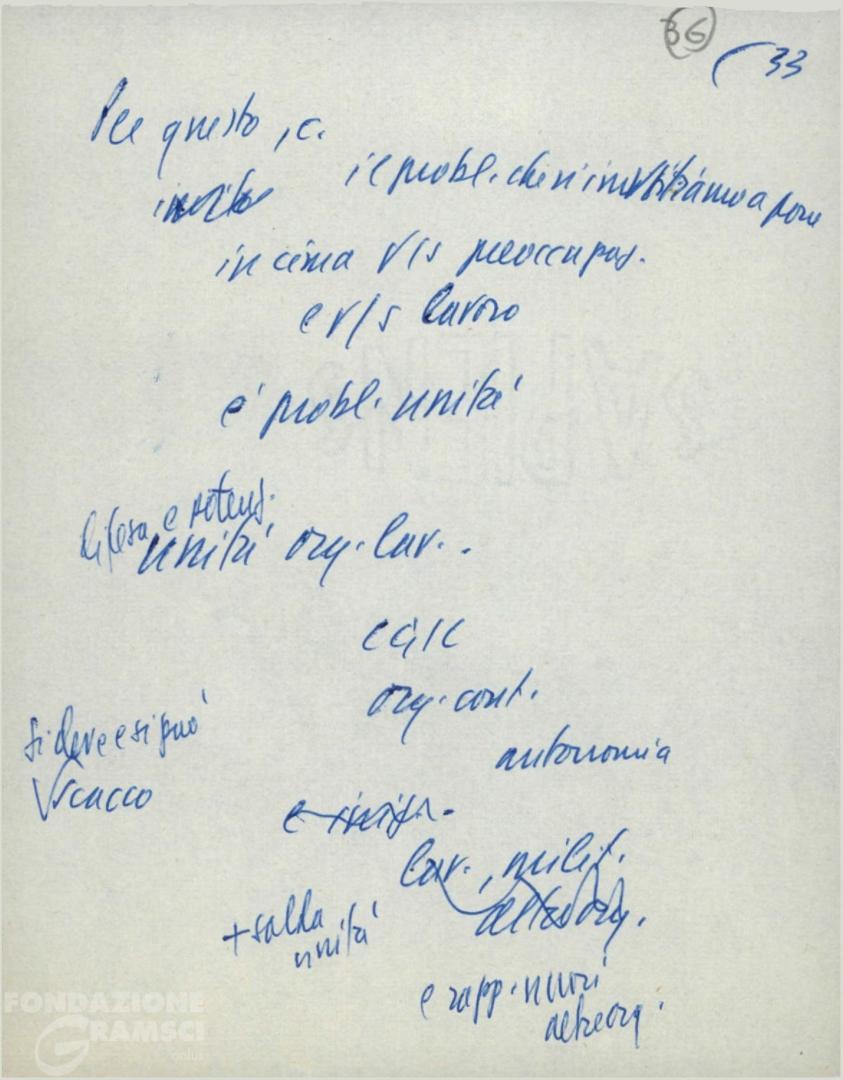 36
33
Per questo, c.
il probl. che vi invitiamo a porre
in cima v/s preoccupaz.
e v/s lavoro
è probl. unità
difesa e
unità org. lav..
CGIL
org. cont.
autonomia
si deve e si può
scacco
lav., milit.
altre org.
+ salda
unità
e rapp. nuovi
altre org.
FONDAZIONE
GRAMSCI
onlus